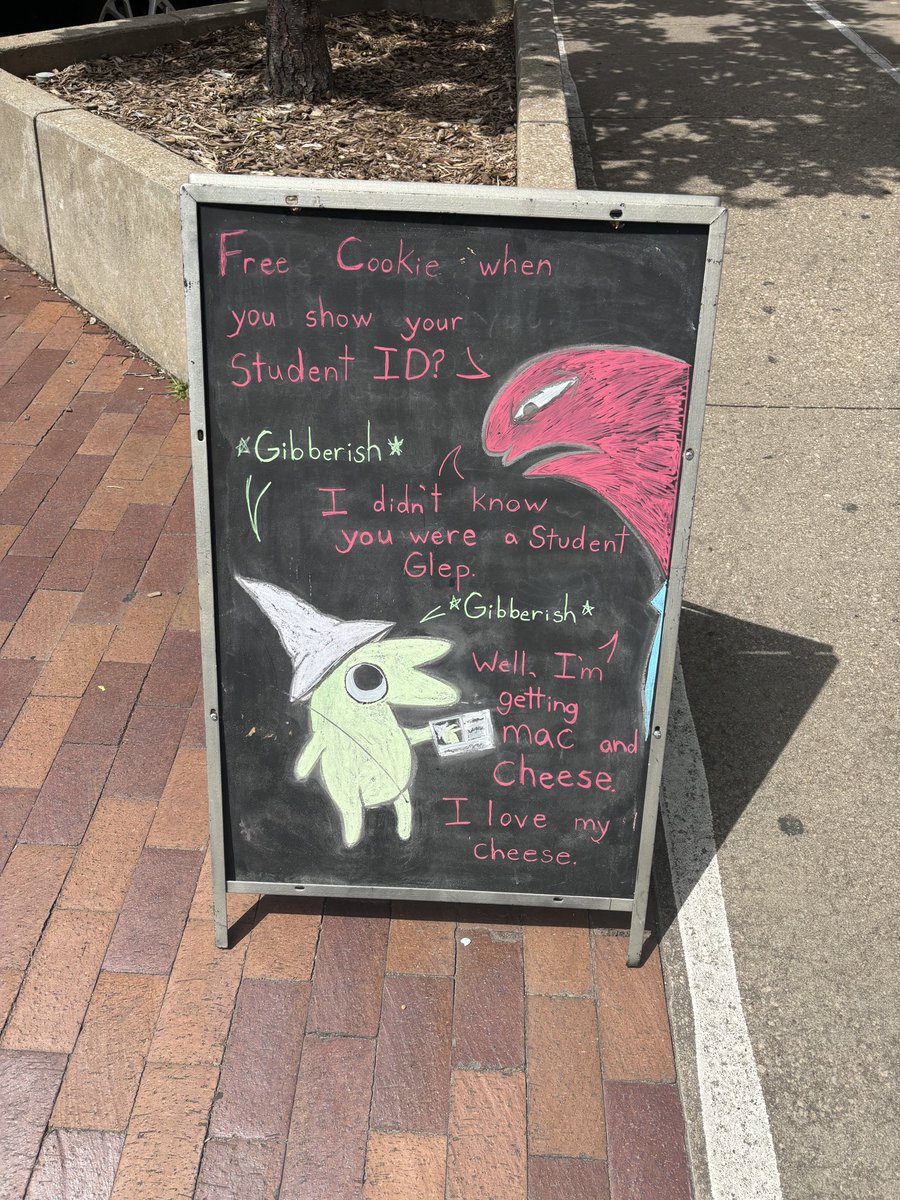 Free Cookie when
you show your
Student ID?
*Gibberish*
I didn't know
you were a Student
Glep.
*Gibberish*
Well, I'm
getting
mac and
cheese.
I love my
cheese.